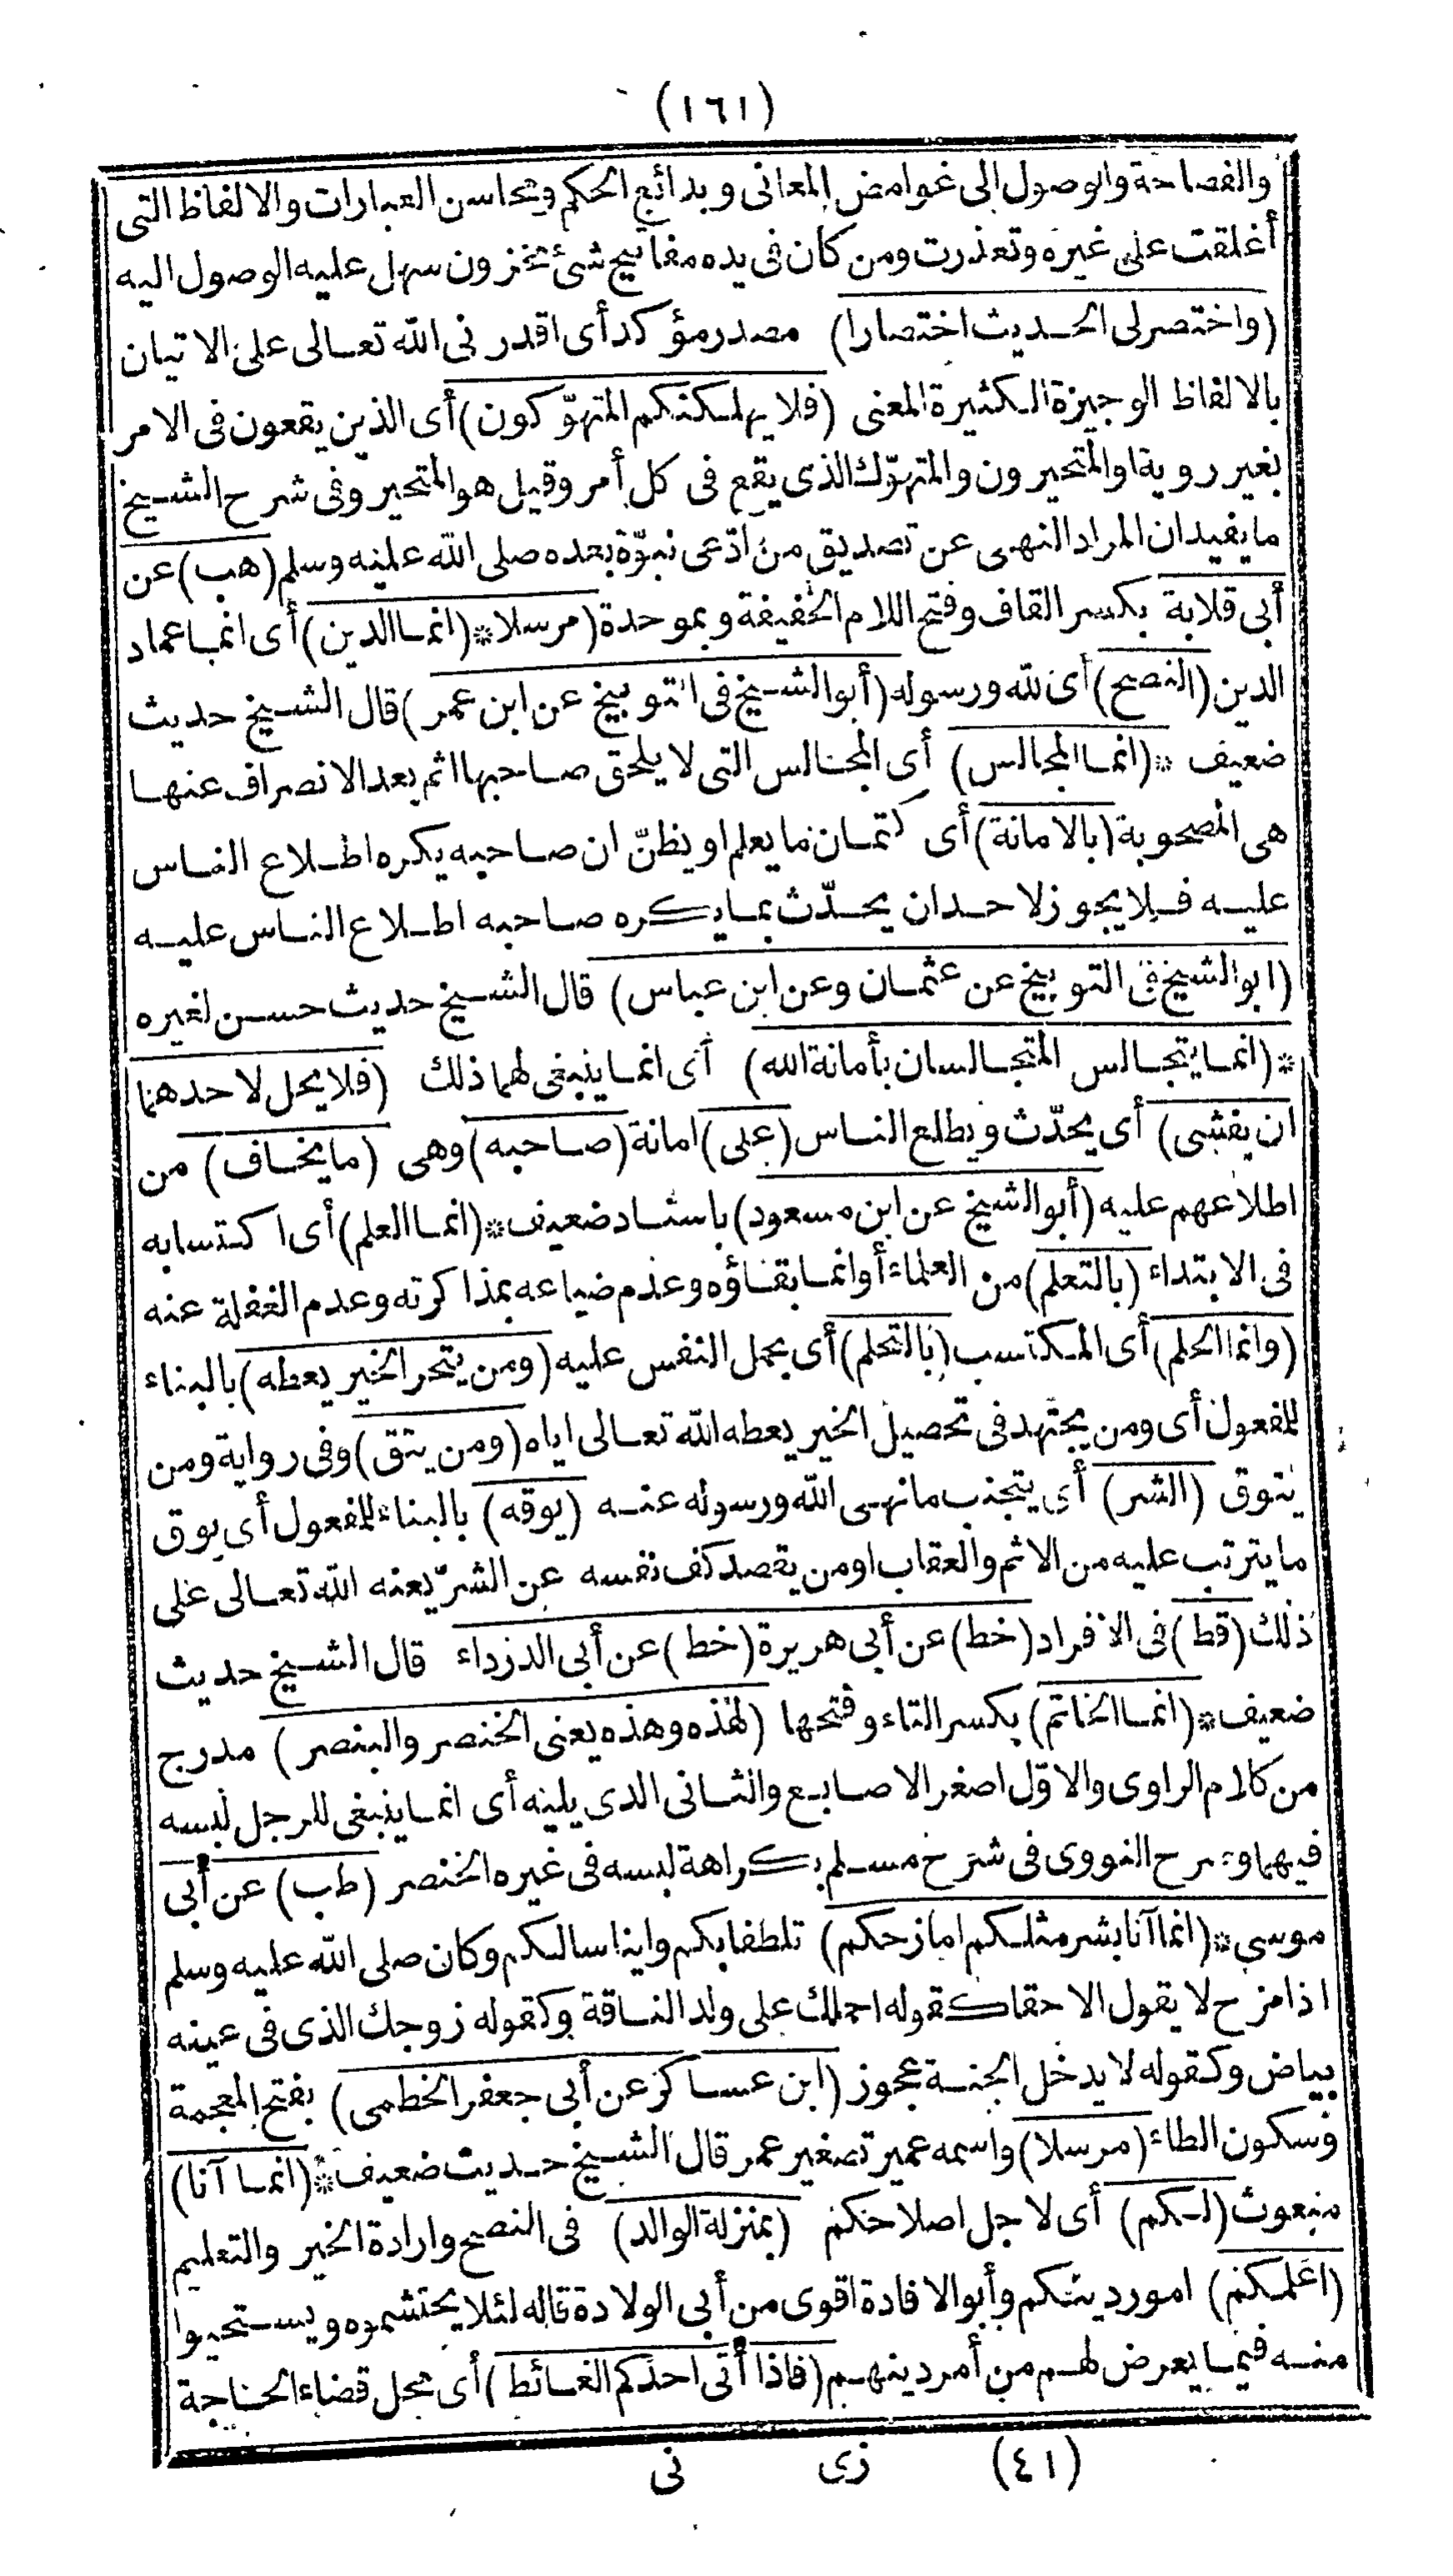 (١٦١)
والفصاحة والوصول الى غوامض المعانى وبدائع الحكم ومحاسن العبارات والالفاظ التى
أغلقت على غيره وتعذرت ومن كان فى يده مفاتيح شئ مخزون سهل عليه الوصول اليه
(واختصر لى الحديث اختصارا) مصدر مؤكد أى اقدرنى الله تعالى على الاتيان
بالالفاظ الوجيزة الكثيرة المعنى (فلا يهلكنكم المتهوّكون) أى الذين يقعون فى الامر
بغير روية او المتحيرون والمتهوّك الذى يقع فى كل أمر وقيل هو المتحير وفى شرح الشيخ
ما يفيد ان المراد النهى عن تصديق من ادّعى نبوّة بعده صلى الله عليه وسلم (هب) عن
أبى قلابة بكسر القاف وفتح اللام الخفيفة وبموحدة (مرسلا * (انما الدين) أى انما عماد
الدين (النصح) أى لله ورسوله (أبو الشيخ فى التوبيخ عن ابن عمر) قال الشيخ حديث
ضعيف * (انما المجالس) أى المجالس التى لا يلحق صاحبها اثم بعد الانصراف عنها
هى المصحوبة (بالامانة) أى كتمان ما يعلم او يظنّ ان صاحبه يكره اطلاع الناس
عليه فلا يجوز لاحد ان يحدّث بما يكره صاحبه اطلاع الناس عليه
(ابو الشيخ فى التوبيخ عن عثمان وعن ابن عباس) قال الشيخ حديث حسن لغيره
* (انما يتجالس المتجالسان بأمانة الله) أى انما ينبغى لهما ذلك (فلا يحل لاحدهما
ان يفشى) أى يحدّث ويطلع الناس (على) امانة (صاحبه) وهى (ما يخاف) من
اطلاعهم عليه (أبو الشيخ عن ابن مسعود) باسناد ضعيف * (انما العلم) أى اكتسابه
فى الابتداء (بالتعلم) من العلماء أو انما بقاؤه وعدم ضياعه بمذاكرته وعدم الغفلة عنه
(وانما الحلم) أى المكتسب (بالتحلم) أى بحمل النفس عليه (ومن يتحر الخير يعطه) بالبناء
للمفعول أى ومن يجتهد فى تحصيل الخير يعطه الله تعالى اياه (ومن يتق) وفى رواية ومن
يتوق (الشر) أى يتجنب ما نهى الله ورسوله عنه (يوقه) بالبناء للمفعول أى يوق
ما يترتب عليه من الاثم والعقاب او من يقصد كف نفسه عن الشرّ يعنه الله تعالى على
ذلك (قط) فى الافراد (خط) عن أبى هريرة (خط) عن أبى الدرداء قال الشيخ حديث
ضعيف * (انما الخاتم) بكسر التاء وفتحها (لهذه وهذه يعنى الخنصر والبنصر) مدرج
من كلام الراوى والاوّل اصغر الاصابع والثانى الذى يليه أى انما ينبغى للرجل لبسه
فيهما وصرح النووى فى شرح مسلم بكراهة لبسه فى غير الخنصر (طب) عن أبى
موسى * (انما أنا بشر مثلكم امازحكم) تلطفا بكم وايناسا لكم وكان صلى الله عليه وسلم
اذا مزح لا يقول الا حقا كقوله احملك على ولد الناقة وكقوله زوجك الذى فى عينه
بياض وكقوله لا يدخل الجنة عجوز (ابن عساكر عن أبى جعفر الخطمى) بفتح المعجمة
وسكون الطاء (مرسلا) واسمه عمير تصغير عمر قال الشيخ حديث ضعيف * (انما أنا)
مبعوث (لكم) أى لاجل اصلاحكم (بمنزلة الوالد) فى النصح وارادة الخير والتعليم
(اعلمكم) امور دينكم وأبو الافادة اقوى من أبى الولادة قاله لئلا يحتشموه ويستحيوا
منه فيما يعرض لهم من أمر دينهم (فاذا أتى احدكم الغائط) أى محل قضاء الحاجة
(٤١) زى نى